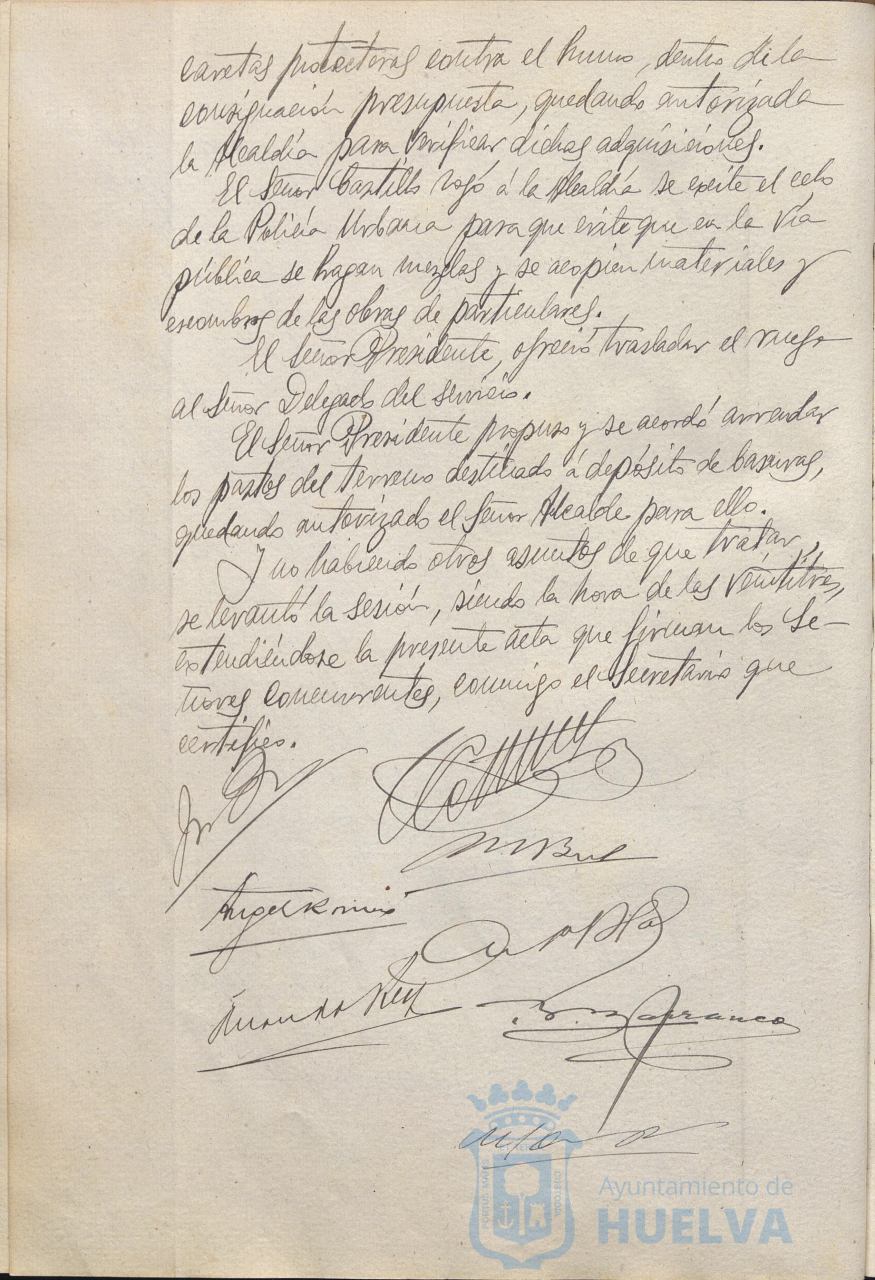 caretas protectoras contra el humo, dentro de la
consignación presupuesta, quedando autorizada
la Alcaldía para verificar dichas adquisiciones.
El Señor Castillo rogó á la Alcaldía se excite el celo
de la Policía Urbana para que evite que en la vía
pública se hagan mezclas y se acopien materiales y
escombros de las obras de particulares.
El Señor Presidente, ofreció trasladar el ruego
al Señor Delegado del servicio.
El Señor Presidente propuso y se acordó arrendar
los pastos del terreno destinado á depósito de basuras,
quedando autorizado el Señor Alcalde para ello.
Y no habiendo otros asuntos de que tratar,
se levantó la sesión, siendo la hora de las veintitrés,
extendiéndose la presente acta que firman los Se-
ñores concurrentes, conmigo el Secretario que
certifico.
Angel
Rey
B. Barranco
PORTUS MARIS
CUSTODIA
Ayuntamiento de
HUELVA